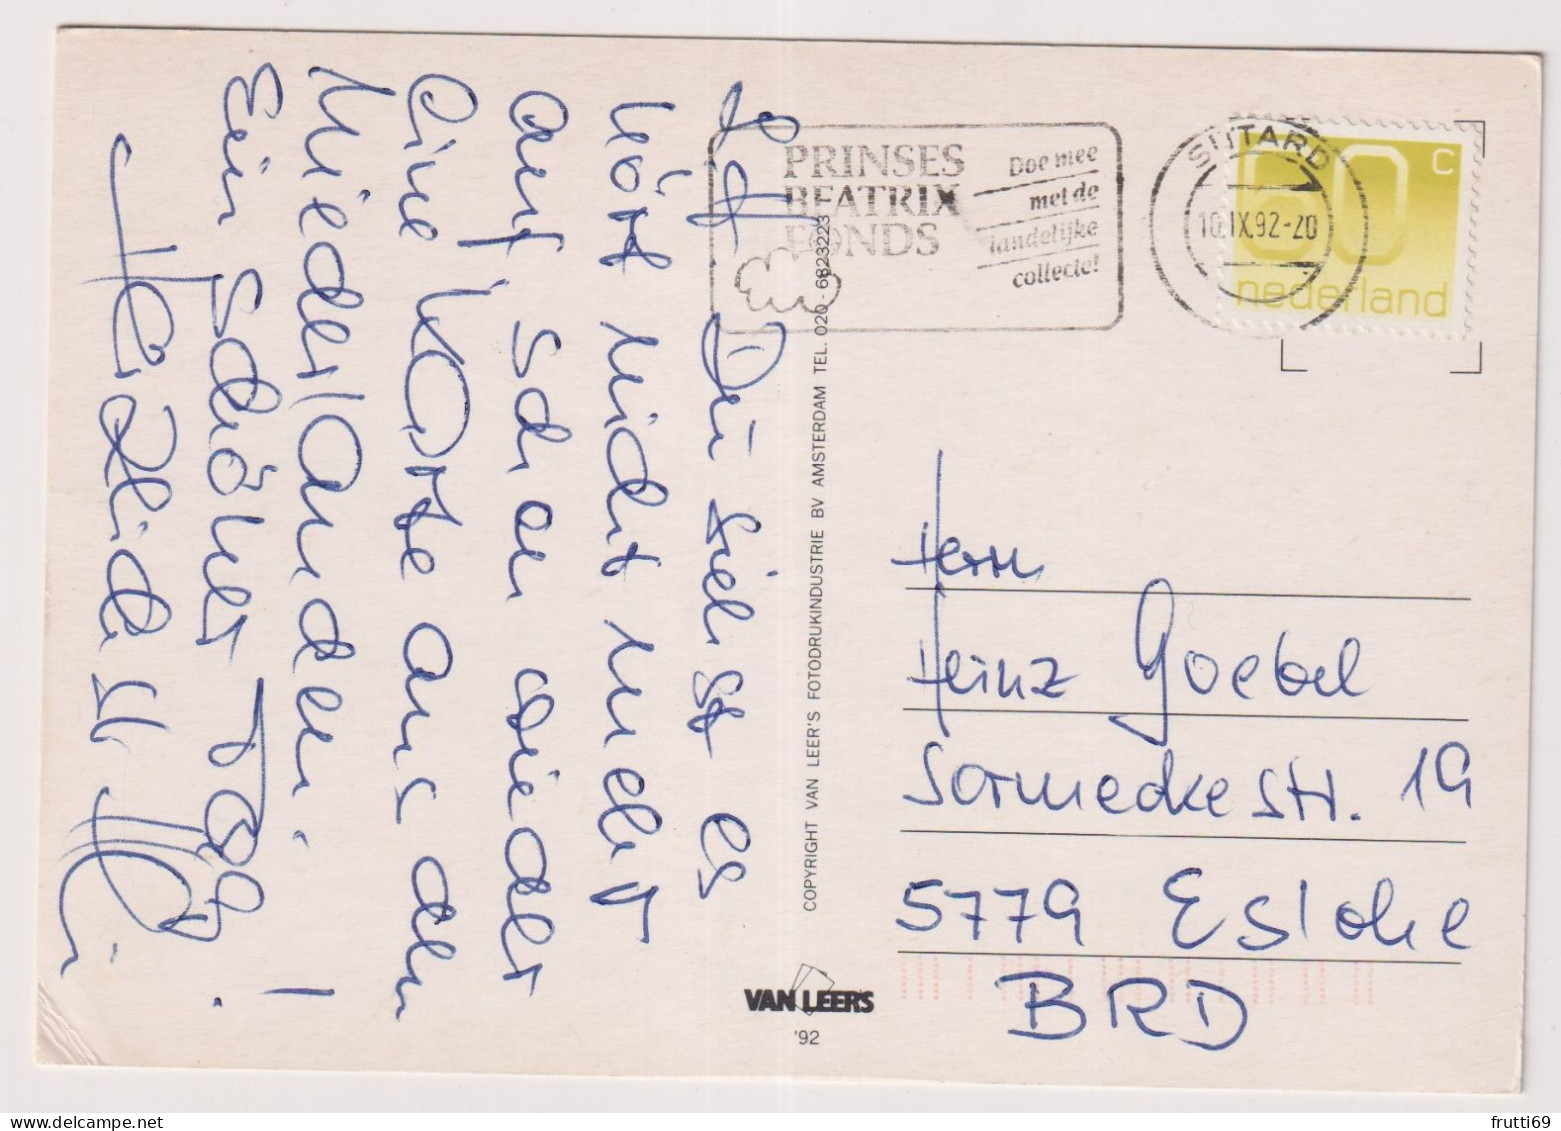 Du siehst es
hört nicht mehr
auf, schon wieder
eine Karte aus den
Niederlanden.
Ein schöner Tag!
PRINSES
BEATRIX
FONDS
Doe mee
met de
landelijke
collecte!
SITTARD
10.IX.92-20
60 c
nederland
COPYRIGHT VAN LEER'S FOTODRUKINDUSTRIE BV AMSTERDAM TEL. 020 - 6823223
VAN LEER'S
'92
Herrn
Heinz Goebel
Sormeckestr. 19
5779 Eslohe
BRD
frutti69